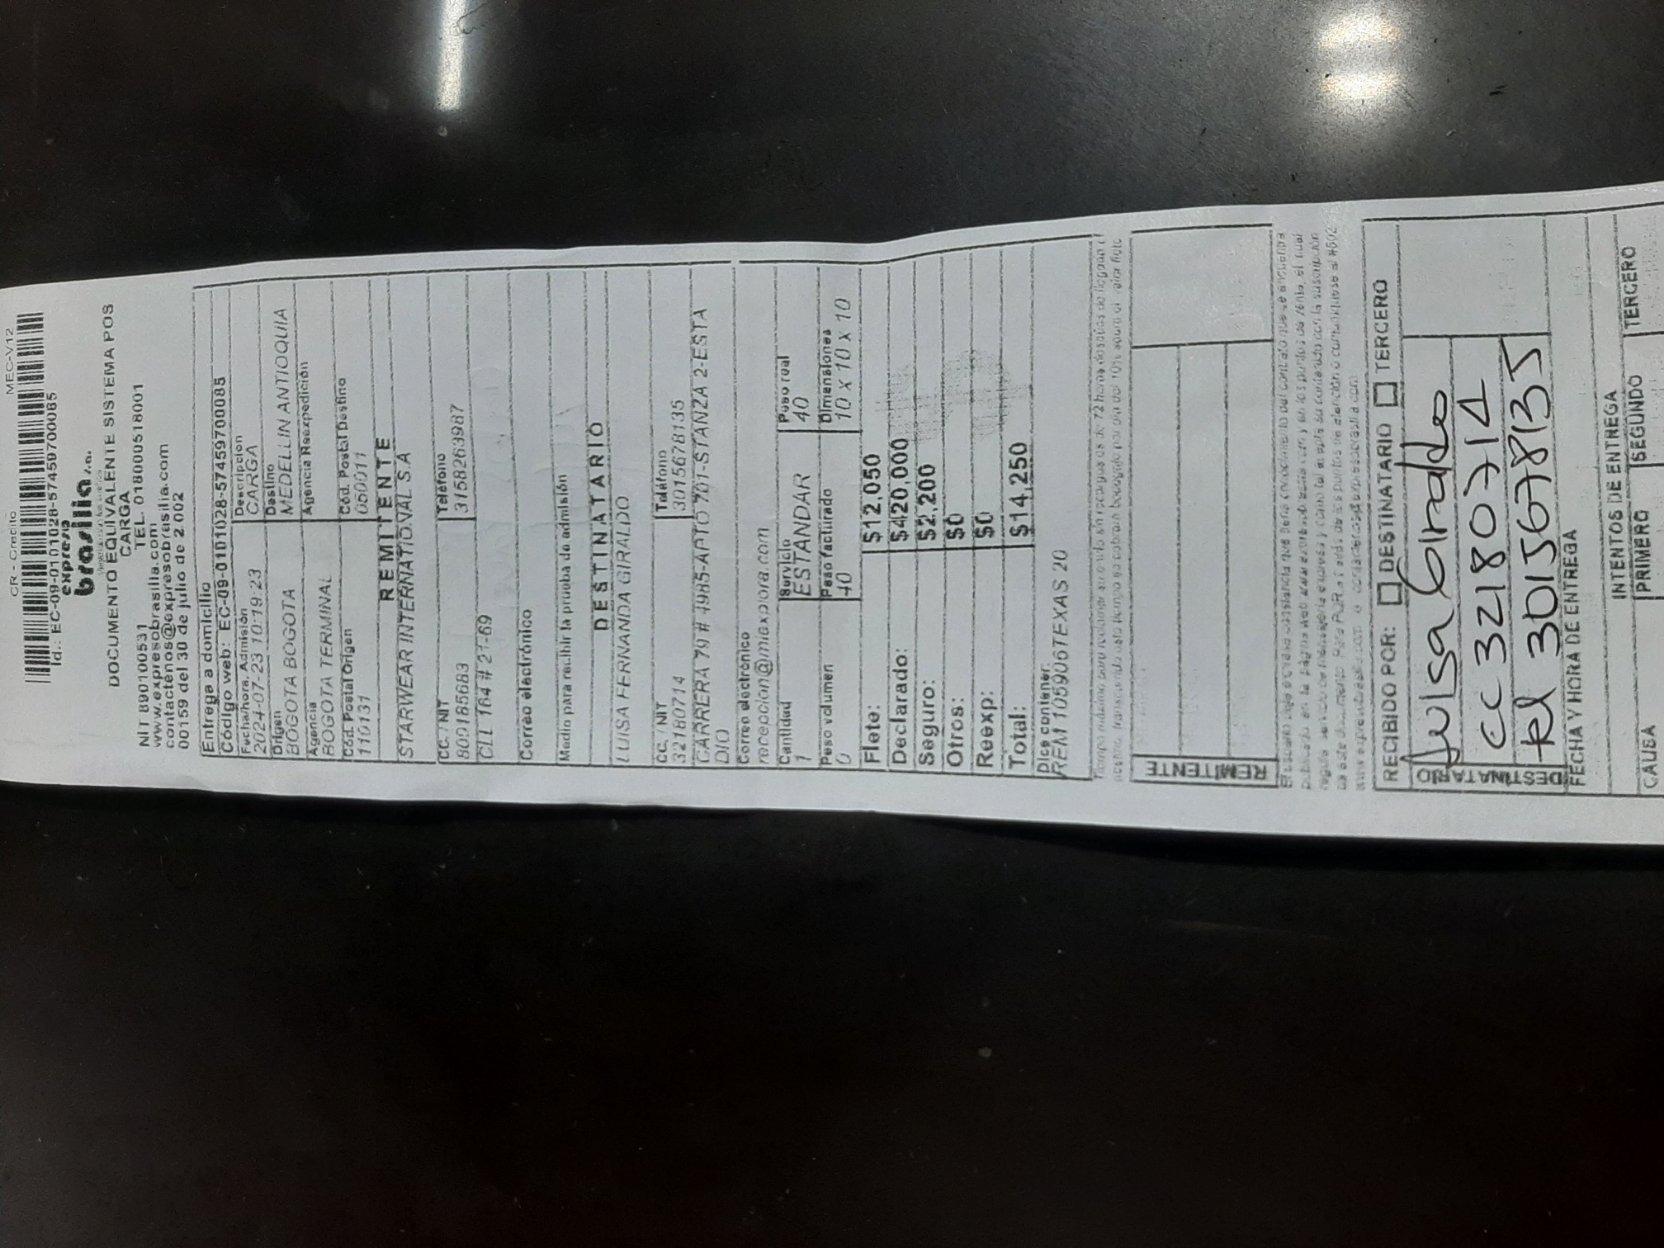 CR - Crédito MEC-V12
Id.: EC-09-0101028-57459700085
expreso
brasilia s.a.
DOCUMENTO EQUIVALENTE SISTEMA POS
CARGA
NIT 890100531 TEL. 018000518001
www.expresobrasilia.com
contactenos@expresobrasilia.com
00159 del 30 de julio de 2.002
Entrega a domicilio
Código web: EC-09-0101028-57459700085
Fecha/hora. Admisión Descripcion
2024-07-23 10:19:23 CARGA
Origen Destino
BOGOTA BOGOTA MEDELLIN ANTIOQUIA
Agencia Agencia Reexpedición
BOGOTA TERMINAL
Cód. Postal Origen Cód. Postal Destino
110131 050011
REMITENTE
STARWEAR INTERNATIONAL S.A
CC. / NIT Teléfono
800185683 3158263987
CLL 164 # 21-69
Correo electrónico
Medio para recibir la prueba de admisión
DESTINATARIO
LUISA FERNANDA GIRALDO
CC. / NIT Teléfono
32180714 3015678135
CARRERA 79 # 4985-APTO 701-STANZA 2-ESTA
DIO
Correo electrónico
recepcion@miexplora.com
Cantidad Servicio Peso real
1 ESTANDAR 40
Peso volumen Peso facturado Dimensiones
0 40 10 x 10 x 10
Flete: $12,050
Declarado: $420,000
Seguro: $2,200
Otros: $0
Reexp: $0
Total: $14,250
Dice contener:
REM 1059061TEXAS 20
REMITENTE
RECIBIDO POR: DESTINATARIO TERCERO
DESTINATARIO
Luisa Giraldo
CC 32180714
tel 3015678135
FECHA Y HORA DE ENTREGA
INTENTOS DE ENTREGA
CAUSA PRIMERO SEGUNDO TERCERO